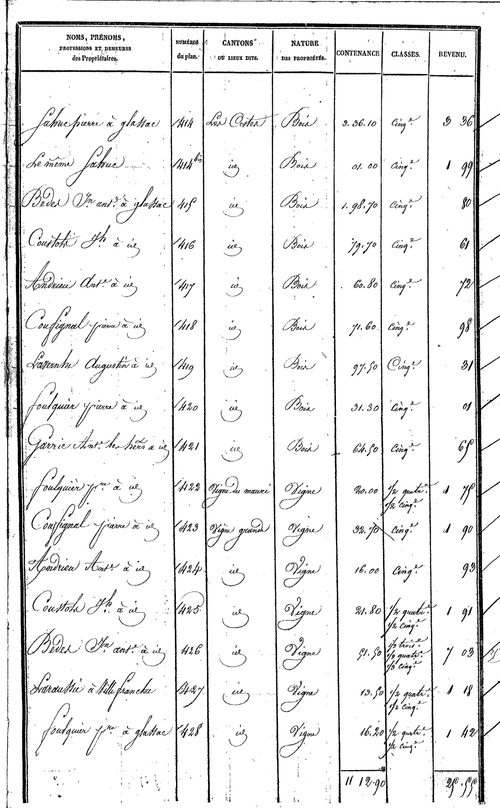 NOMS, PRÉNOMS, PROFESSIONS ET DEMEURES des Propriétaires. NUMÉROS du plan. CANTONS OU LIEUX DITS. NATURE DES PROPRIÉTÉS. CONTENANCE CLASSES. REVENU.
pierre à glassac 1414 Les Costes Bois 3.36.10 Cinq.e 3 36
Le même 1414 bis id Bois 01.00 Cinq.e 1 99
Bedes Jn ant.e à glassac 415 id Bois 1.98.70 Cinq.e 80
à id 416 id Bois 79.70 Cinq.e 61
Andrieu Ant.e à id 417 id Bois 60.80 Cinq.e 72
Coufignal pierre à id 418 id Bois 71.60 Cinq.e 98
Augustin à id 419 id Bois 97.50 Cinq.e 31
foulquier pierre à id 420 id Bois 31.30 Cinq.e 01
Garric Ant.e à id 421 id Bois 64.50 Cinq.e 65
foulquier pre à id 422 Vigne du Vigne 20.00 1/2 quatr. 1/2 cinq.e 1 75
Coufignal pierre à id 423 Vigne grande Vigne 32.70 Cinq.e 1 90
Andrieu Ant.e à id 424 id Vigne 16.00 Cinq.e 93
à id 425 id Vigne 21.80 1/2 quatr. 1/2 cinq.e 1 91
Bedes Jn ant.e à id 426 id Vigne 51.50 quatr. cinq.e 7 03
à Villefranche 427 id Vigne 13.50 1/2 quatr. 1/2 cinq.e 1 18
foulquier pre à glassac 428 id Vigne 16.20 1/2 quatr. 1/2 cinq.e 1 42
11 12.90 25.55